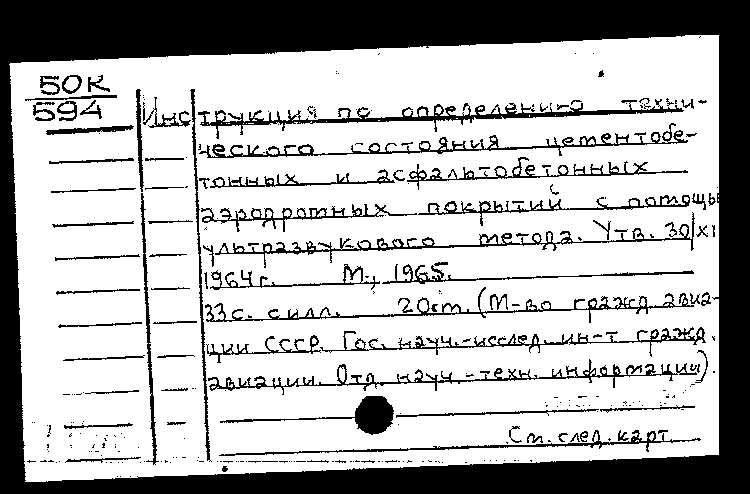 50К
594
Инструкция по определению техни-
ческого состояния цементобе-
тонных и асфальтобетонных
аэродромных покрытий с помощью
ультразвукового метода. Утв. 30/XI
1964г. М., 1965.
33с. с илл. 20см. (М-во гражд. авиа-
ции СССР. Гос. науч.-исслед. ин-т гражд.
авиации. Отд. науч.-техн. информации).
См. след. карт.